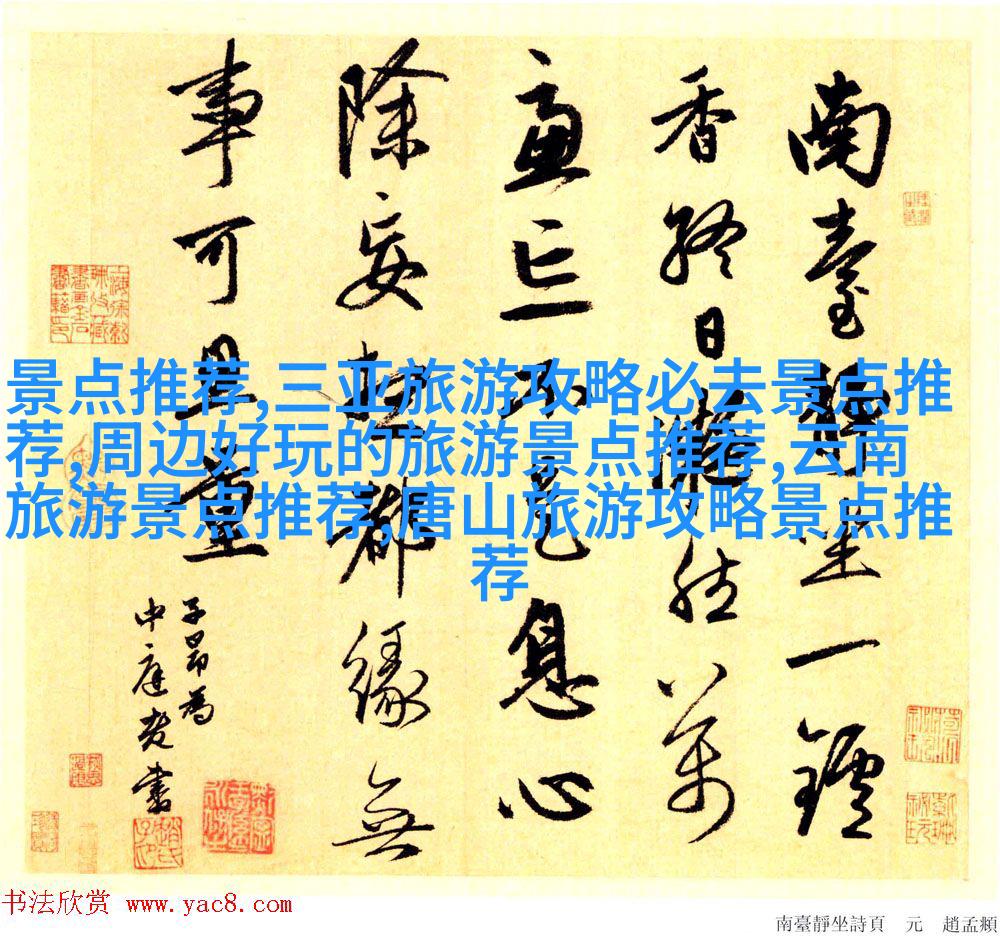 南臺靜坐一鑪
香終日凝然萬
慮亡不是息心
除妄想都緣無
事可思量
子昂為
中庭老書
景点推荐,三亚旅游攻略必去景点推
荐,周边好玩的旅游景点推荐,云南
旅游景点推荐,唐山旅游攻略景点推
荐
书法欣赏 www.yac8.com
南臺靜坐詩頁 元 趙孟頫